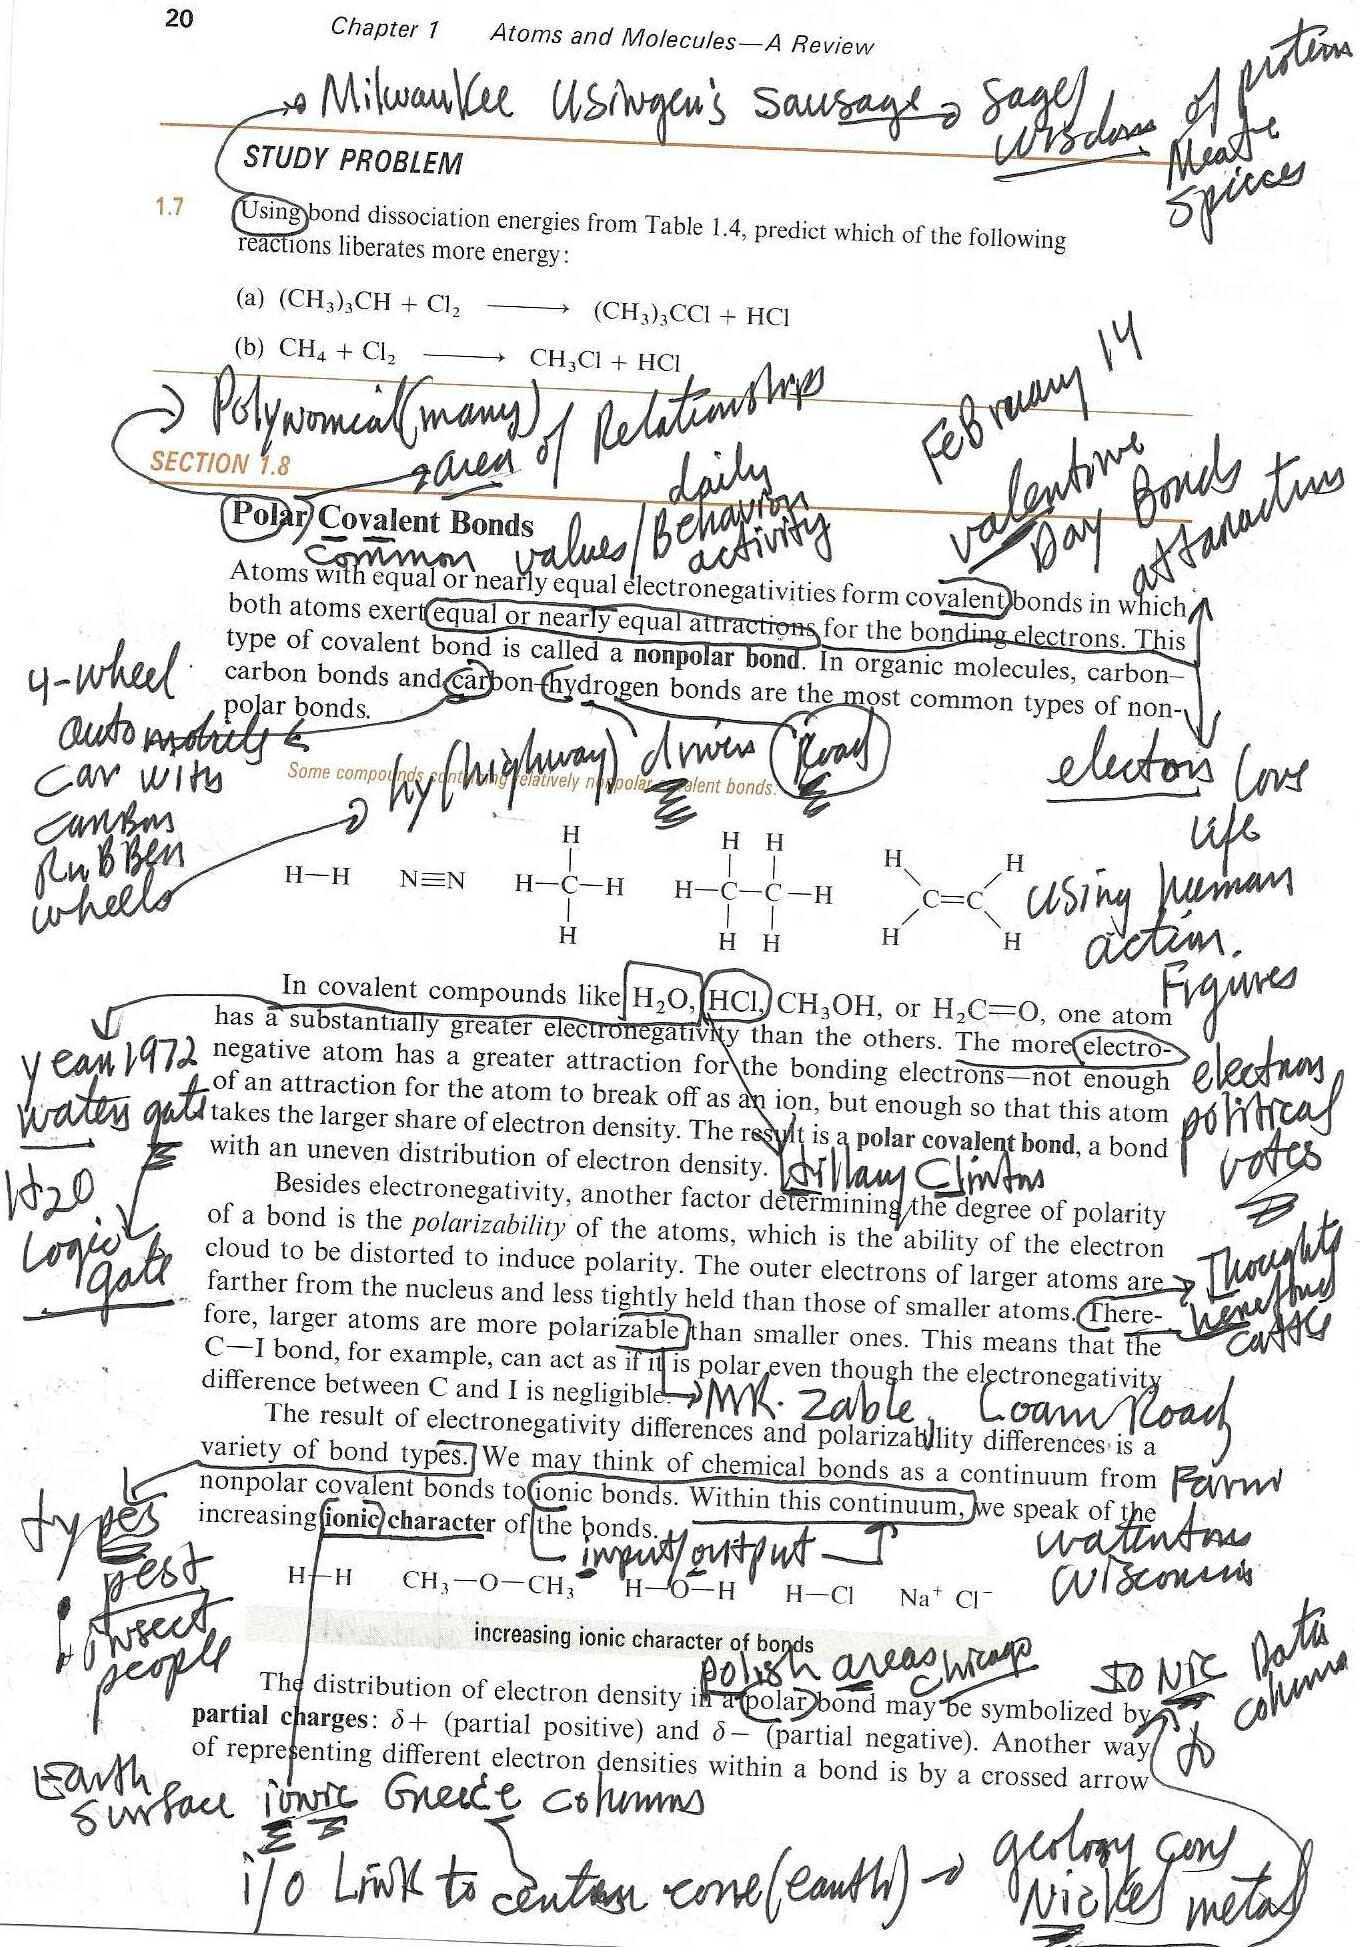 20
Chapter 1 Atoms and Molecules—A Review
Milwaukee Usinger's Sausage sages
wisdom
of protein
Meat
Spices
STUDY PROBLEM
1.7 Using bond dissociation energies from Table 1.4, predict which of the following
reactions liberates more energy:
(a) (CH₃)₃CH + Cl₂ ⟶ (CH₃)₃CCl + HCl
(b) CH₄ + Cl₂ ⟶ CH₃Cl + HCl
Polynomial (many)
area of Relationships
February 14
valentine
Day Bonds
SECTION 1.8
daily
Behavior
activity
Polar Covalent Bonds
common values/
Atoms with equal or nearly equal electronegativities form covalent bonds in which
both atoms exert equal or nearly equal attractions for the bonding electrons. This
type of covalent bond is called a nonpolar bond. In organic molecules, carbon–
carbon bonds and carbon–hydrogen bonds are the most common types of non-
polar bonds.
4-wheel
automobile
car with
carbon
RuBBer
wheels
hy(highway) drivers Road
Some compounds containing relatively nonpolar covalent bonds.
electors love
life
using human
action
Figures
H
H H
H H
H—H N≡N H—C—H H—C—C—H C=C
H
H H
H H
In covalent compounds like H₂O, HCl, CH₃OH, or H₂C=O, one atom
has a substantially greater electronegativity than the others. The more electro-
negative atom has a greater attraction for the bonding electrons—not enough
of an attraction for the atom to break off as an ion, but enough so that this atom
takes the larger share of electron density. The result is a polar covalent bond, a bond
with an uneven distribution of electron density.
Hillary Clinton
year 1972
water gate
H2O
Logic
gate
political
votes
Besides electronegativity, another factor determining the degree of polarity
of a bond is the polarizability of the atoms, which is the ability of the electron
cloud to be distorted to induce polarity. The outer electrons of larger atoms are
farther from the nucleus and less tightly held than those of smaller atoms. There-
fore, larger atoms are more polarizable than smaller ones. This means that the
C—I bond, for example, can act as if it is polar even though the electronegativity
difference between C and I is negligible.
Thoughts
cattle
MR. Zable, Loam Road
Farm
Wisconsin
The result of electronegativity differences and polarizability differences is a
variety of bond types. We may think of chemical bonds as a continuum from
nonpolar covalent bonds to ionic bonds. Within this continuum, we speak of the
increasing ionic character of the bonds.
input/output
types
pest
insect
people
H—H CH₃—O—CH₃ H—O—H H—Cl Na⁺ Cl⁻
increasing ionic character of bonds
Polish areas Chicago
Data
column
The distribution of electron density in a polar bond may be symbolized by
partial charges: δ+ (partial positive) and δ− (partial negative). Another way
of representing different electron densities within a bond is by a crossed arrow
to
Earth
surface ionic Greece columns
i/o Link to center core (earth)
geology core
Nickel metal